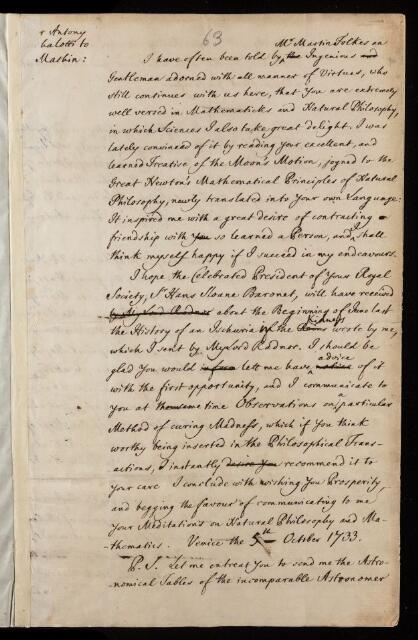 + Antony
Calotti to
Machin:
63
Mr. Martin Folkes an
I have often been told by the Ingenious and
Gentleman adorned with all manner of Virtues, who
still continues with us here, that You are extremely
well versed in Mathematicks and Natural Philosophy,
in which Sciences I also take great delight. I was
lately convinced of it by reading your excellent, and
learned Treatise of the Moon's Motion, joyned to the
Great Newton's Mathematical Principles of Natural
Philosophy, newly translated into Your own Language:
It inspired me with a great desire of contracting
friendship with you so learned a Person, and I shall
think myself happy if I succeed in my endeavours.
I hope the Celebrated President of Your Royal
Society, Sr. Hans Sloane Baronet, will have received
by My Lord Radnor about the Beginning of June last
Kidneys
the History of an Ischuria of the Reins wrote by me,
which I sent by My Lord Radnor. I should be
advice
glad You would in few lett me have notice of it
with the first opportunity, and I communicate to
You at the same time Observations on a particular
Method of curing Madness, which if You think
worthy being inserted in the Philosophical Trans-
actions, I instantly desire you recommend it to
your care. I conclude with wishing You Prosperity,
and begging the favour of communicating to me
Your Meditations on Natural Philosophy and Ma-
thematics. Venice the 5th October 1733.
P. S. Let me entreat You to send me the Astro-
nomical Tables of the incomparable Astronomer